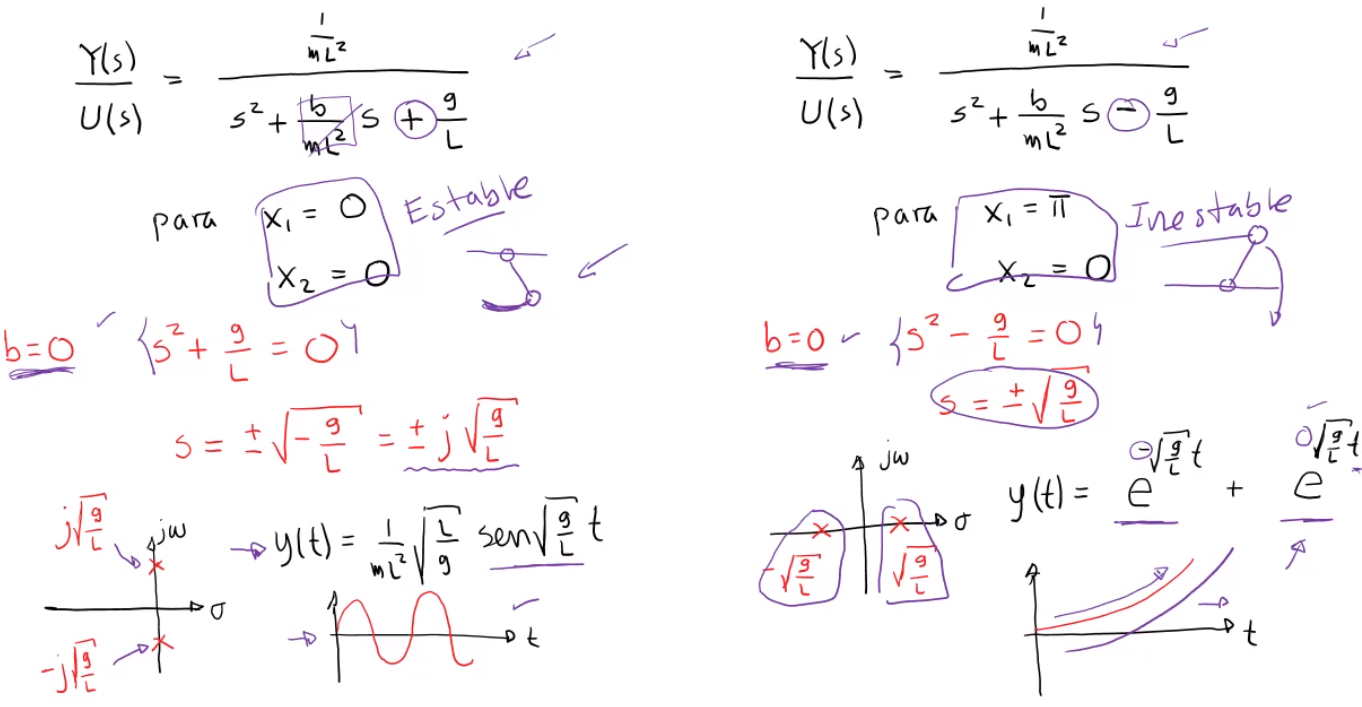 Y(s)/U(s) = (1/mL²) / (s² + (b/mL²) s + g/L)
para x₁ = 0 Estable
x₂ = 0
b=0 {s² + g/L = 0}
s = ±√(-g/L) = ± j √(g/L)
j√(g/L)
jω
σ
-j√(g/L)
y(t) = (1/mL²) √(L/g) sen√(g/L) t
t
Y(s)/U(s) = (1/mL²) / (s² + (b/mL²) s - g/L)
para x₁ = π Inestable
x₂ = 0
b=0 {s² - g/L = 0}
s = ±√(g/L)
jω
σ
-√(g/L) √(g/L)
y(t) = e^(-√(g/L) t) + e^(√(g/L) t)
t